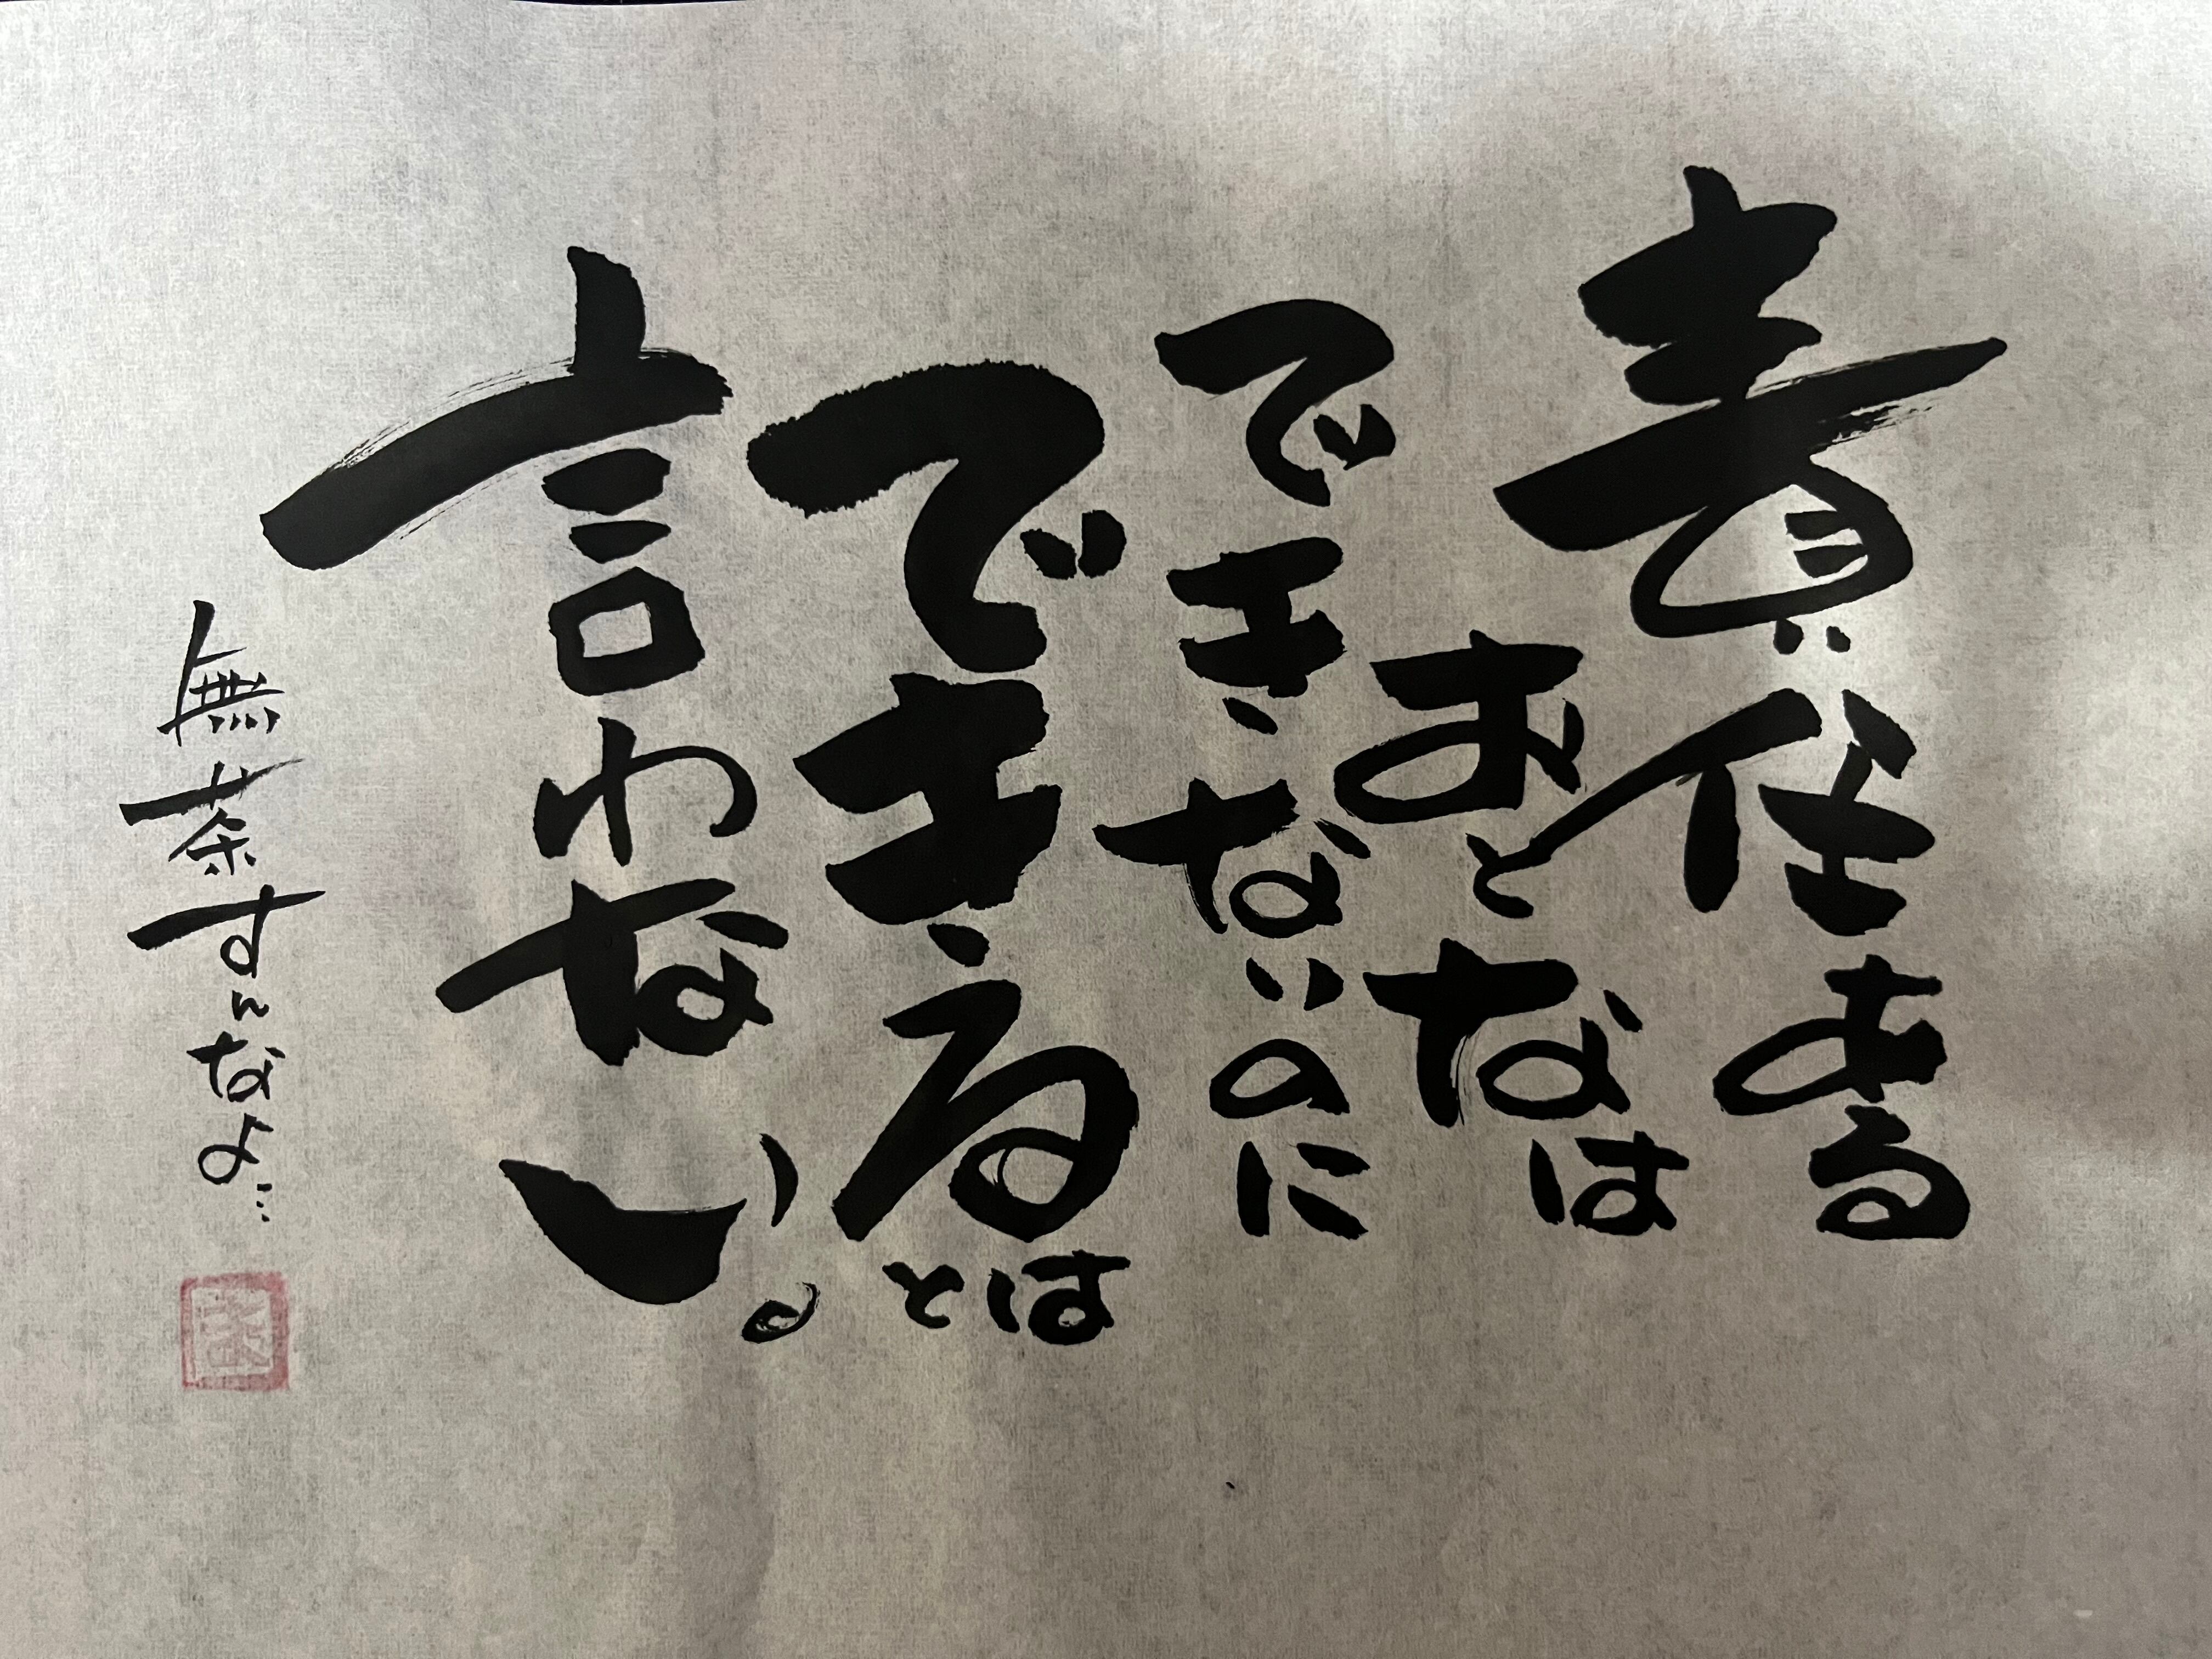 責任ある
おとなは
できないのに
できるとは
言わない。
無茶すんなよ…